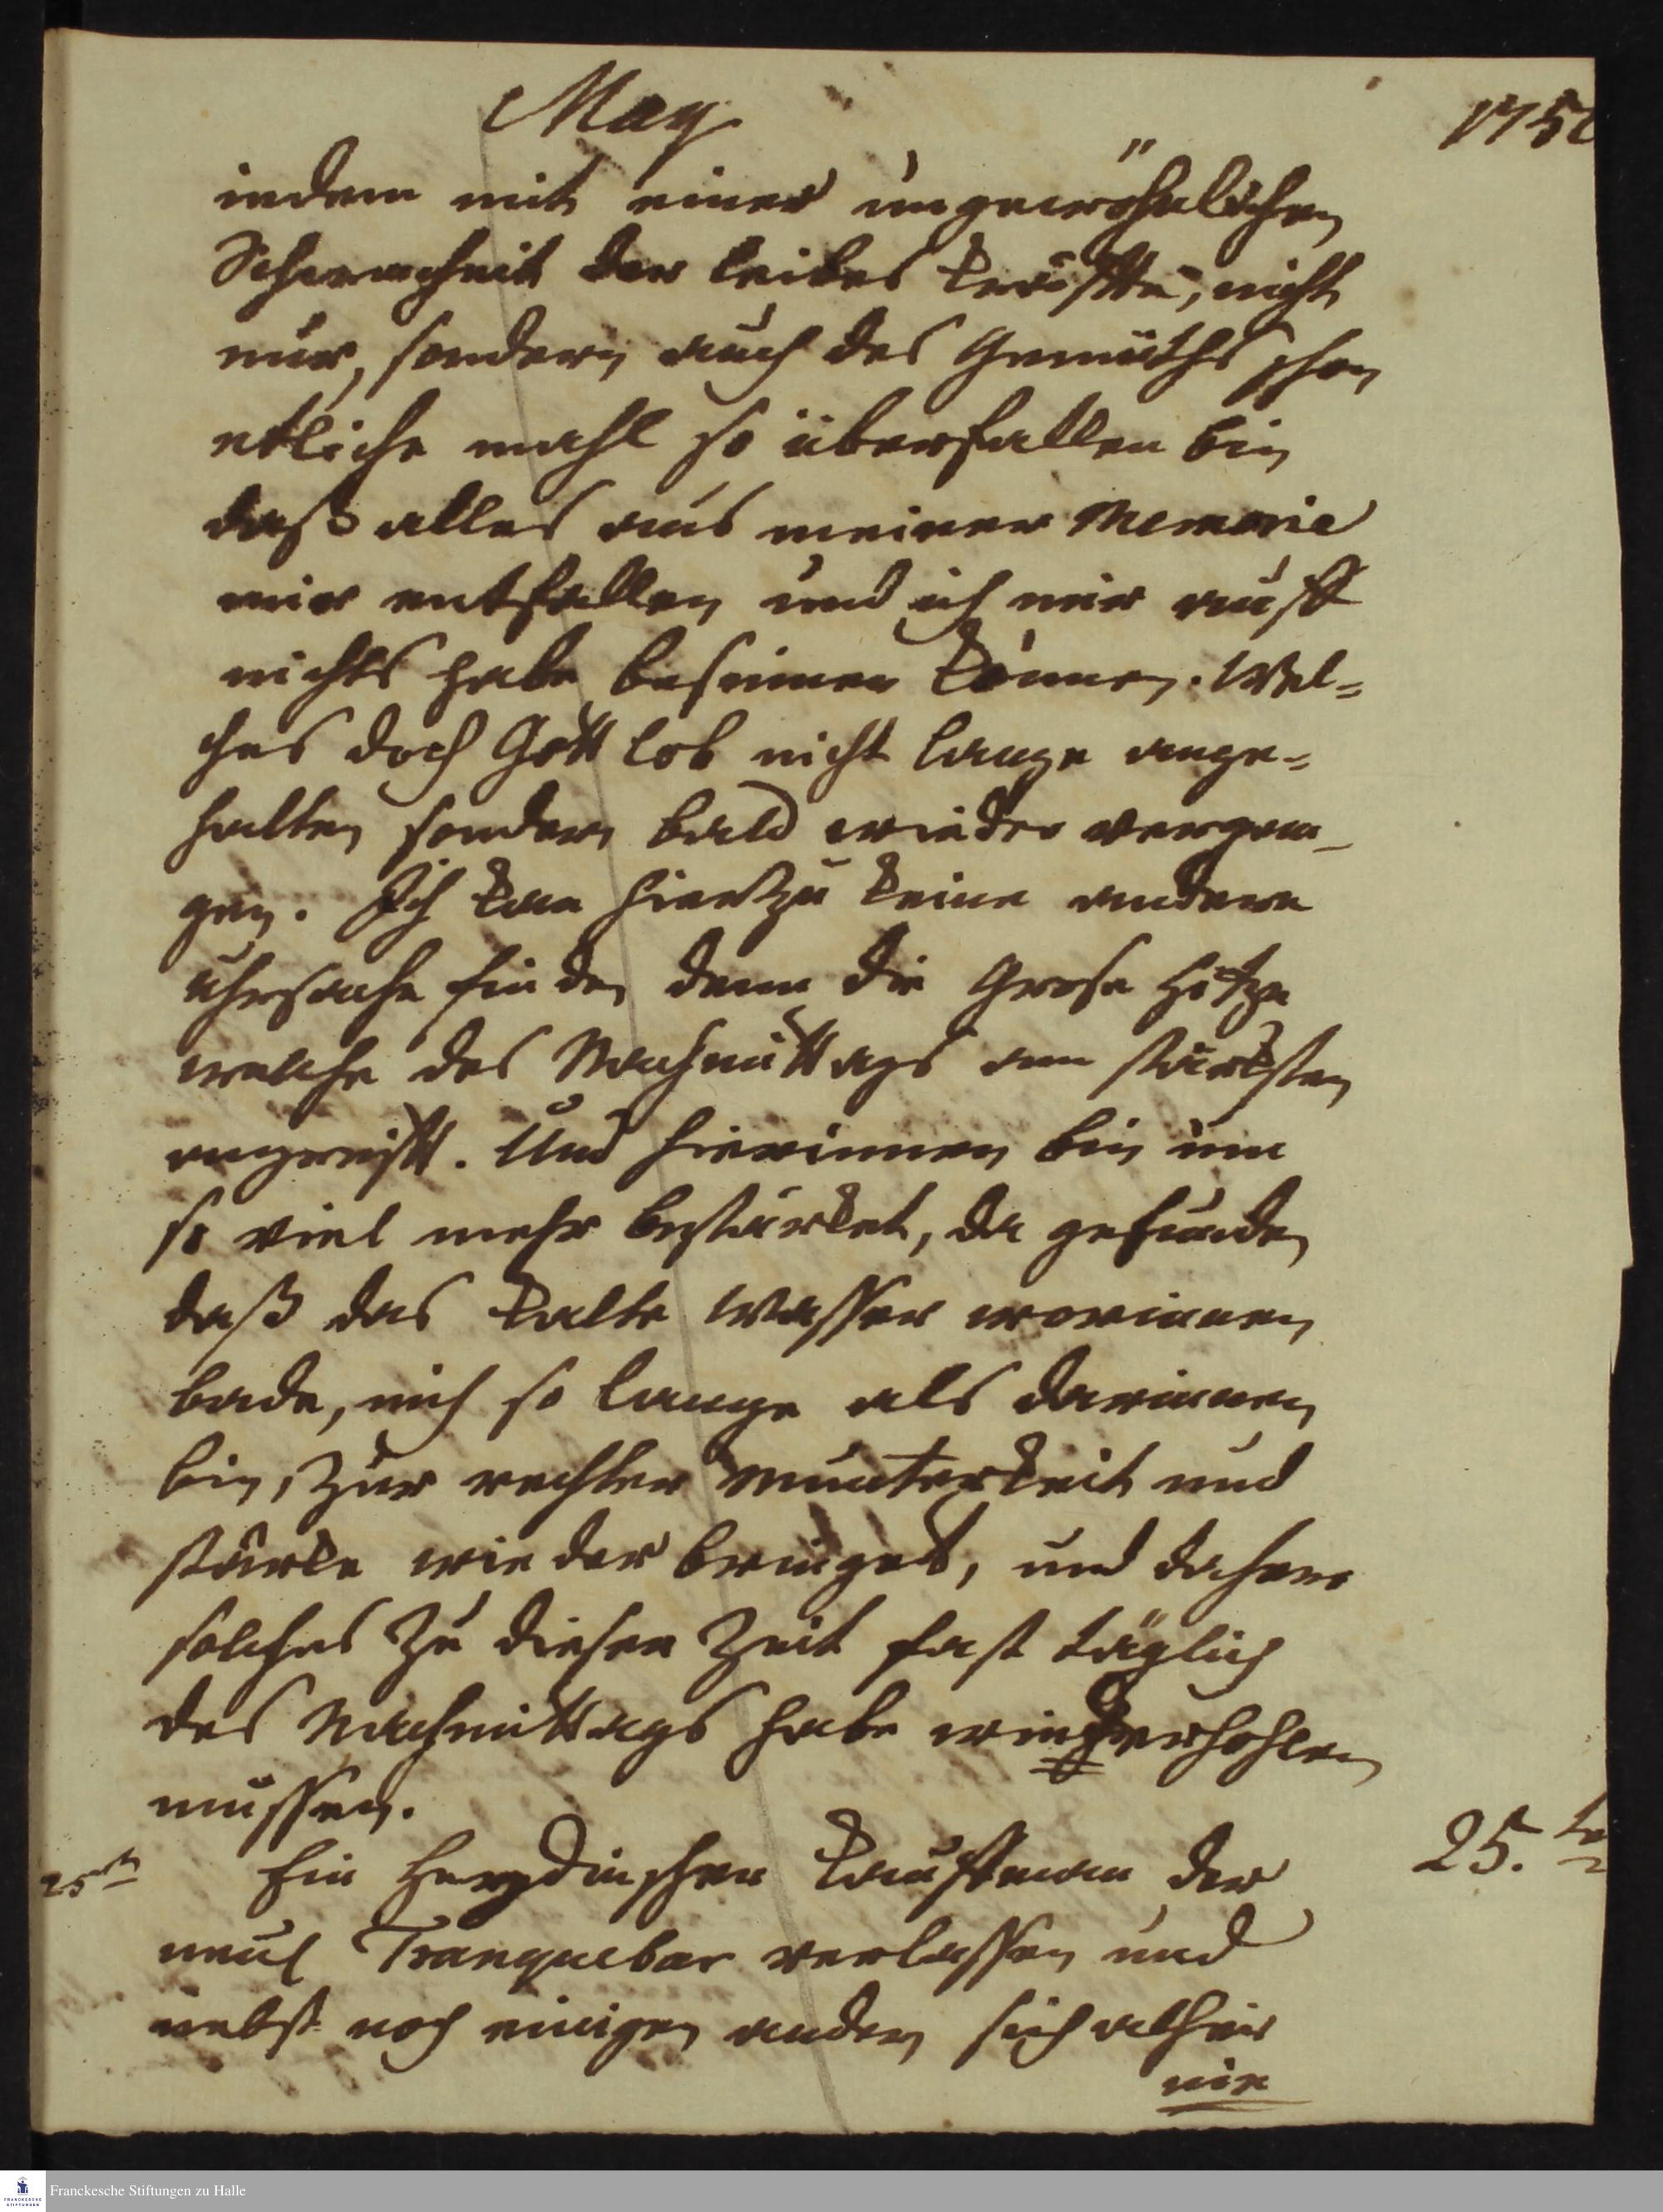 May
1756
indem mit einer ungewöhnlichen
Schwachheit der leibes kräffte, nicht
nur, sondern auch des Gemüths schon
etliche mahl so überfallen bin
daß alles aus meiner Memorie
mir entfallen und ich mir auff
nichts habe besinnen können. Wel=
ches doch Gott lob nicht lange ange=
halten sondern bald wieder vergan-
gen. Ich kan hierzu keine andere
Uhrsache finden denn die Grose Hitze
welche des Nachmittags am stärksten
angreifft. Und hierinnen bin um
so viel mehr bestärket, da gefunden
daß das kalte Wasser worinnen
bade, mich so lange als darinnen
bin, zur rechter Munterkeit und
stärke wieder bringet, und dahero
solches zu dieser Zeit fast täglich
des Nachmittags habe wiederhohlen
müssen.
25.te
25ten Ein Heydnischer Kauffman der
neul Tranquebar verlassen und
nebst noch einigen andern sich alhier
nie
Franckesche Stiftungen zu Halle